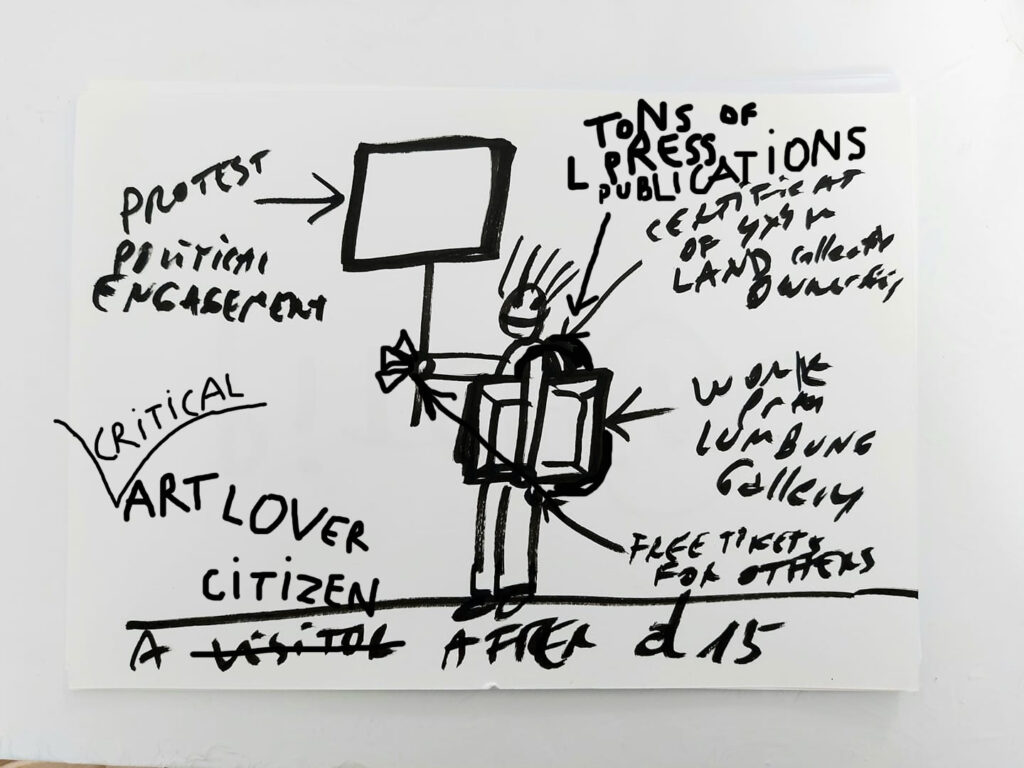 PROTEST
POLITICAL
ENGAGEMENT
TONS OF
L PRESS
PUBLICATIONS
CERTIFICAT
OF
LAND collective
OWNERSHIP
WORK
FROM
LUMBUNG
Gallery
FREE TIKETS
FOR OTHERS
CRITICAL
ART LOVER
CITIZEN
A VISITOR AFTER d15